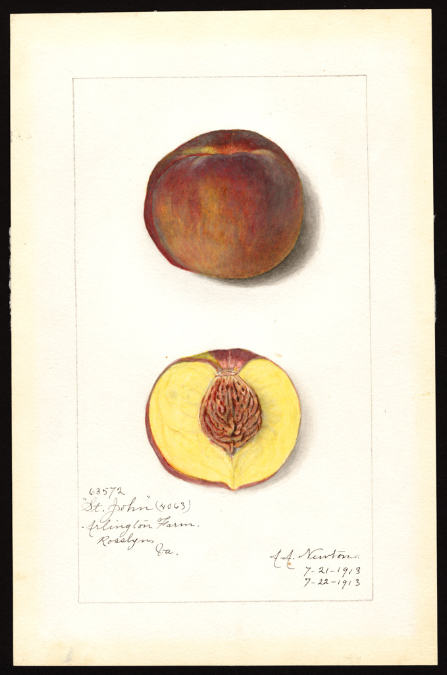 63572
"St. John" (4063)
Arlington Farm.
Rosslyn,
Va.
A.A. Newton.
7-21-1913
7-22-1913